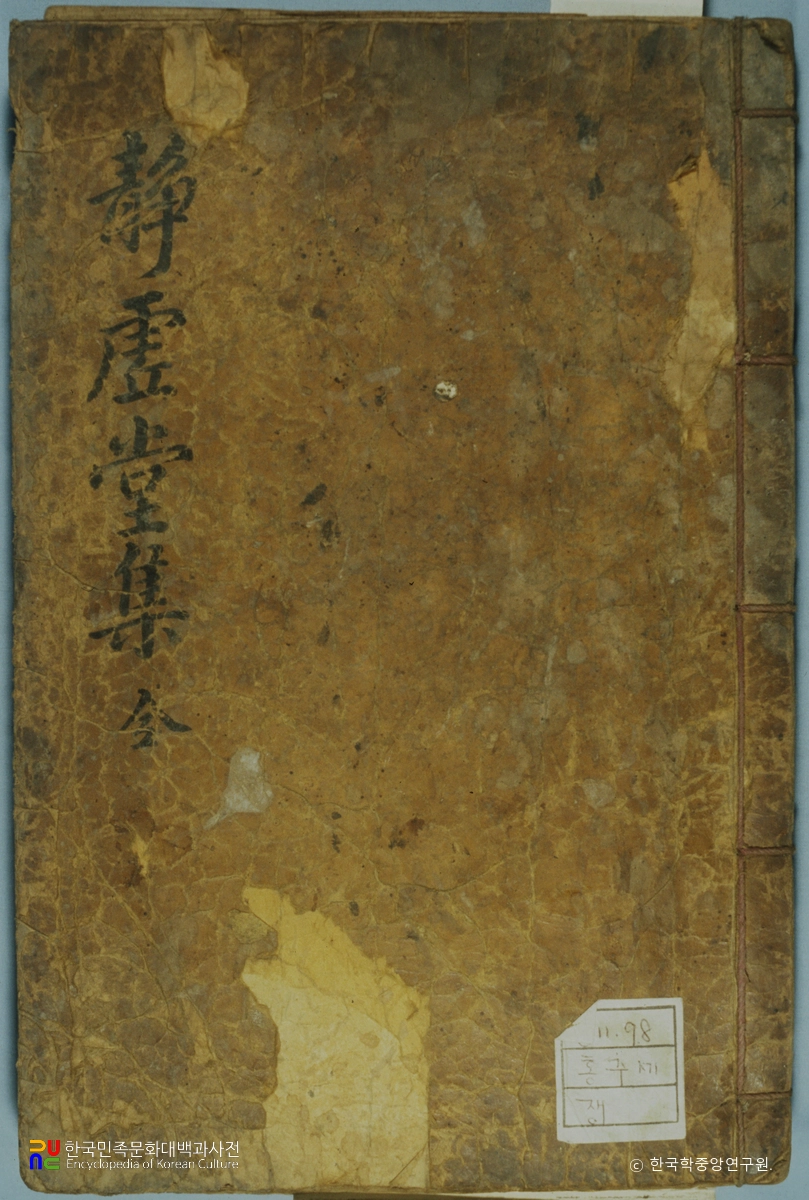 靜虛堂集 全
11.98
홍주세
정
한국민족문화대백과사전
Encyclopedia of Korean Culture
© 한국학중앙연구원.